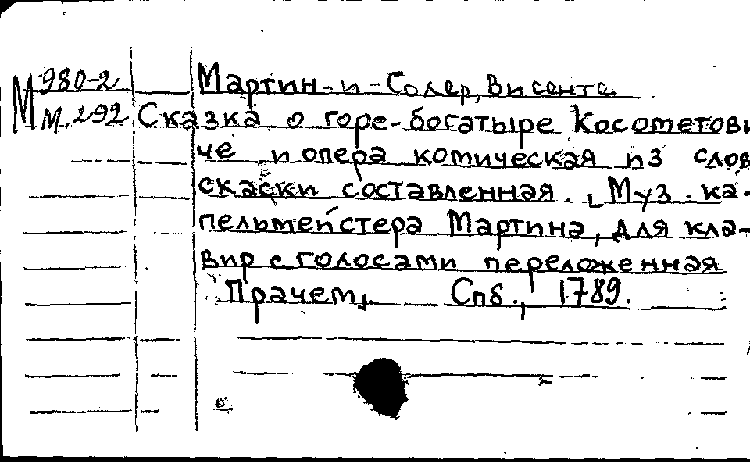 М 980-2 Мартин-и-Солер, Висенте
М.292 Сказка о горе-богатыре Косометови
че и опера комическая из слов
скаски составленная. Муз. ка-
пельмейстера Мартина, для кла-
вир с голосами переложенная
Прачем, Спб., 1789.